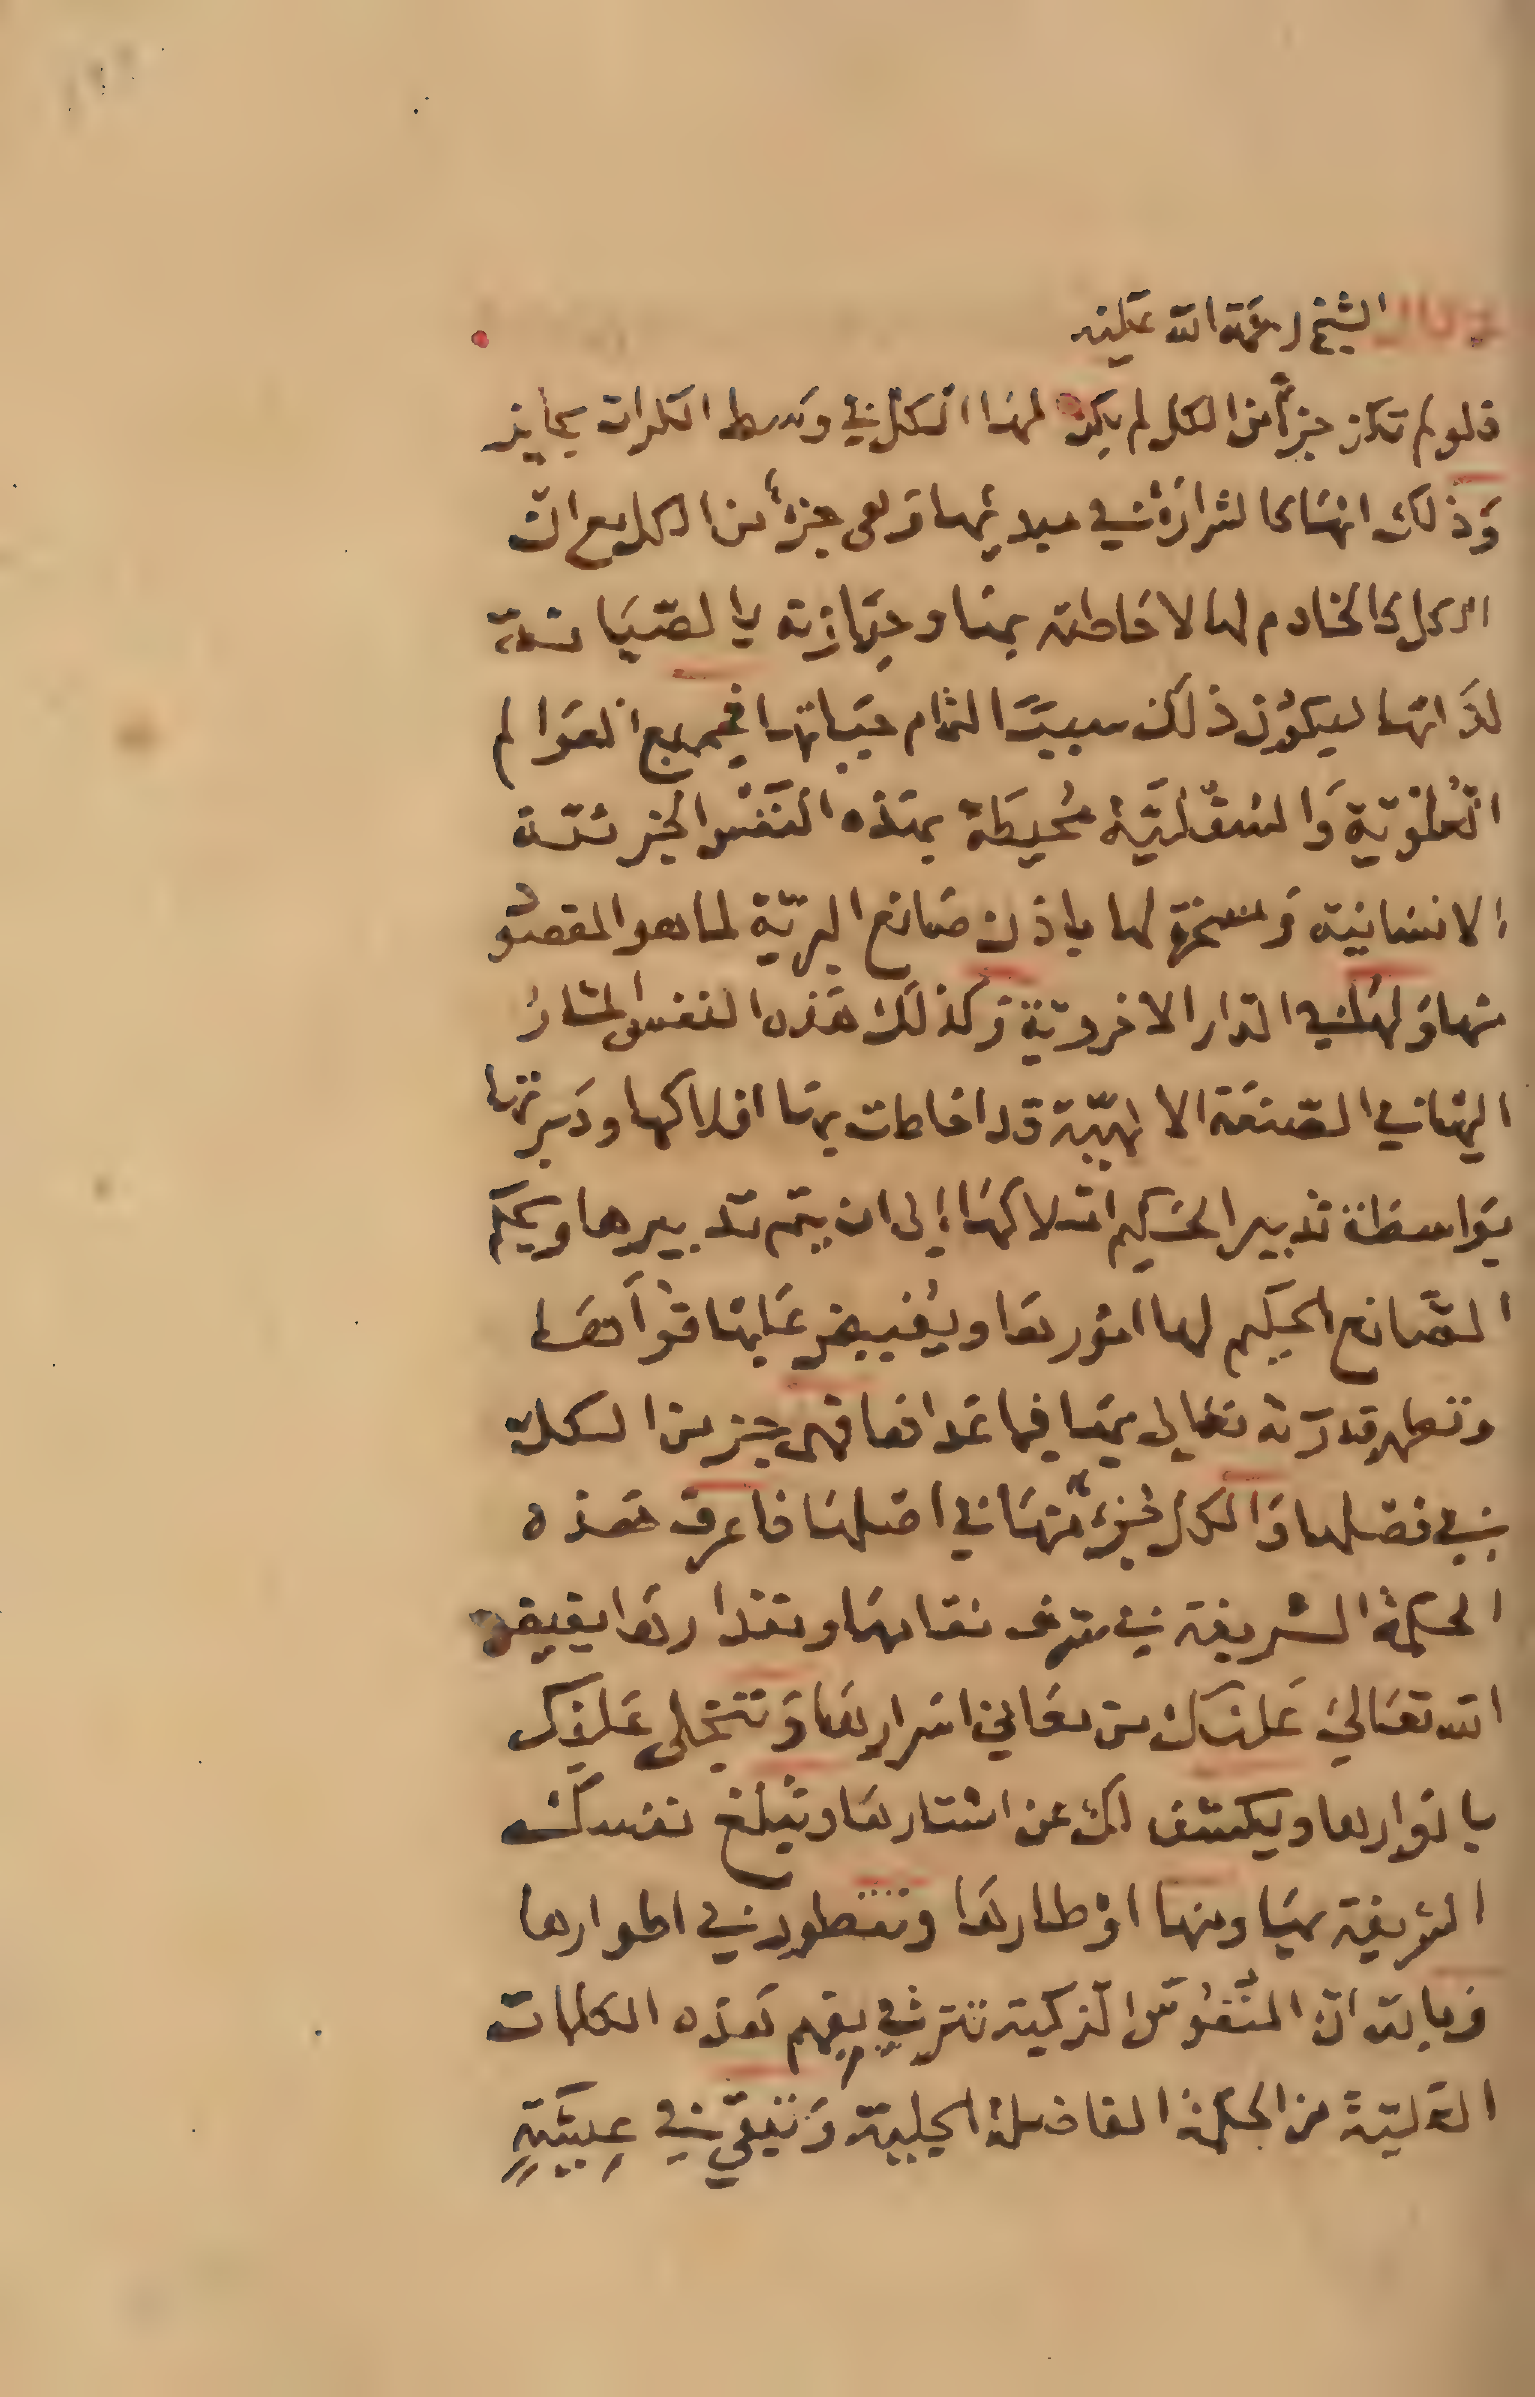 قال الشيخ رحمة الله عليه
فلو لم تكن جزأ من الكل لم يكن لهذا الكل في وسط الكرات بجايز
وذلك انها كالشرارة في مبديها وهي جزء من الكل مع ان
الكل كالخادم لها لاحاطته بها وحيازته بالصيانة
لذاتها ليكون ذلك سببًا لتمام حياتها فجميع العوالم
العلوية والسفلية محيطة بهذه النفس الجزئية
الانسانية ومسخرة لها باذن صانع البرية لما هو المقصود
منها ولها في الدار الاخروية وكذلك هذه النفس المشار
اليها في الصنعة الالهية قد احاطت بها افلاكها ودبرتها
بواسطة تدبير الحكيم املاكها إلى ان يتم تدبيرها ويحكم
الصانع الحكيم لها امورها ويفيض عليها قواها
وتظهر قدرته تعالى بها فيما عداها فهي جز من الكل
في فصلها والكل جزء منها في اصلها فاعرف هذه
الحكمة الشريفة في شرف مقامها ومقدارها يفيض
الله تعالى عليك من معاني اسرارها وتتجلى عليك
بانوارها ويكشف لك عن استارها وتبلغ نفسك
الشريفة بها ومنها اوطارها وتتطور في اطوارها
فبالله ان النفوس الزكية تترقي بفهم هذه الكلمات
العلية من الحكمة الفاضلة الجلية وتبقى في عيشة